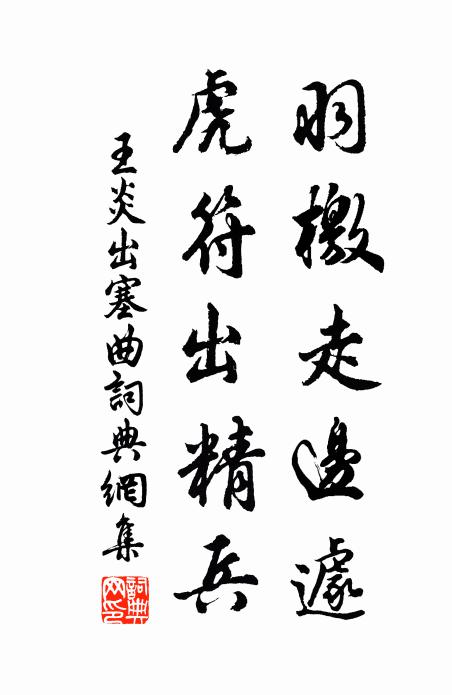 羽檄走邊遽
虎符出精兵
王炎出塞曲詞典網集
詞典網印